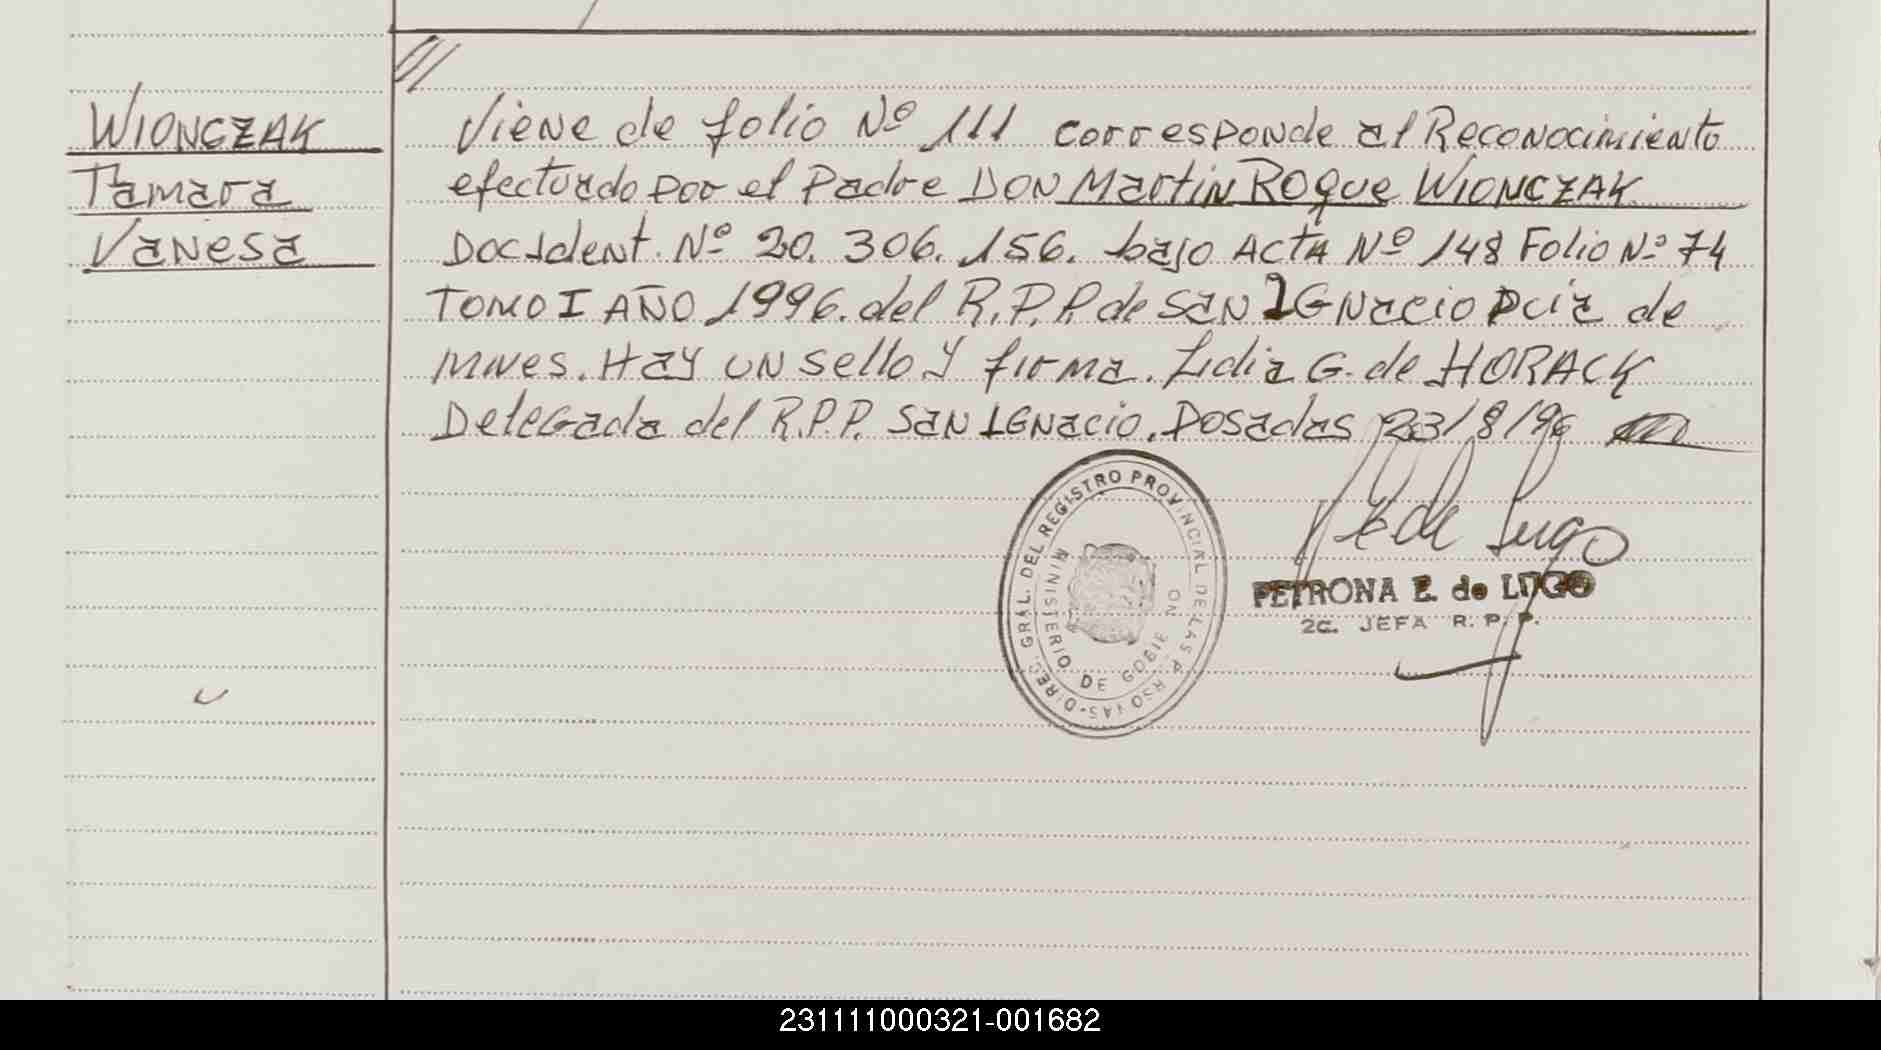 ///
WIONCZAK
Tamara
Vanesa
Viene de folio Nº 111 corresponde al Reconocimiento
efectuado por el Padre DON Martin ROque WIONCZAK
Doc Ident. Nº 20.306.156. bajo Acta Nº 148 Folio Nº 74
TOMO I AÑO 1996. del R.P.P. de San IGNacio Pcia de
Mnes. Hay un sello y firma. Lidia G. de HORACK
Delegada del R.P.P. San IGNacio. Posadas 23/8/96
DIREC. GRAL. DEL REGISTRO PROVINCIAL DE LAS P RSONAS
MINISTERIO DE GOBIE NO
de Lugo
PETRONA E. de LUGO
2a. JEFA R. P. P.
231111000321-001682